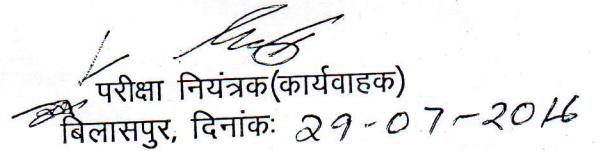 परीक्षा नियंत्रक(कार्यवाहक)
बिलासपुर, दिनांकः 29-07-2016